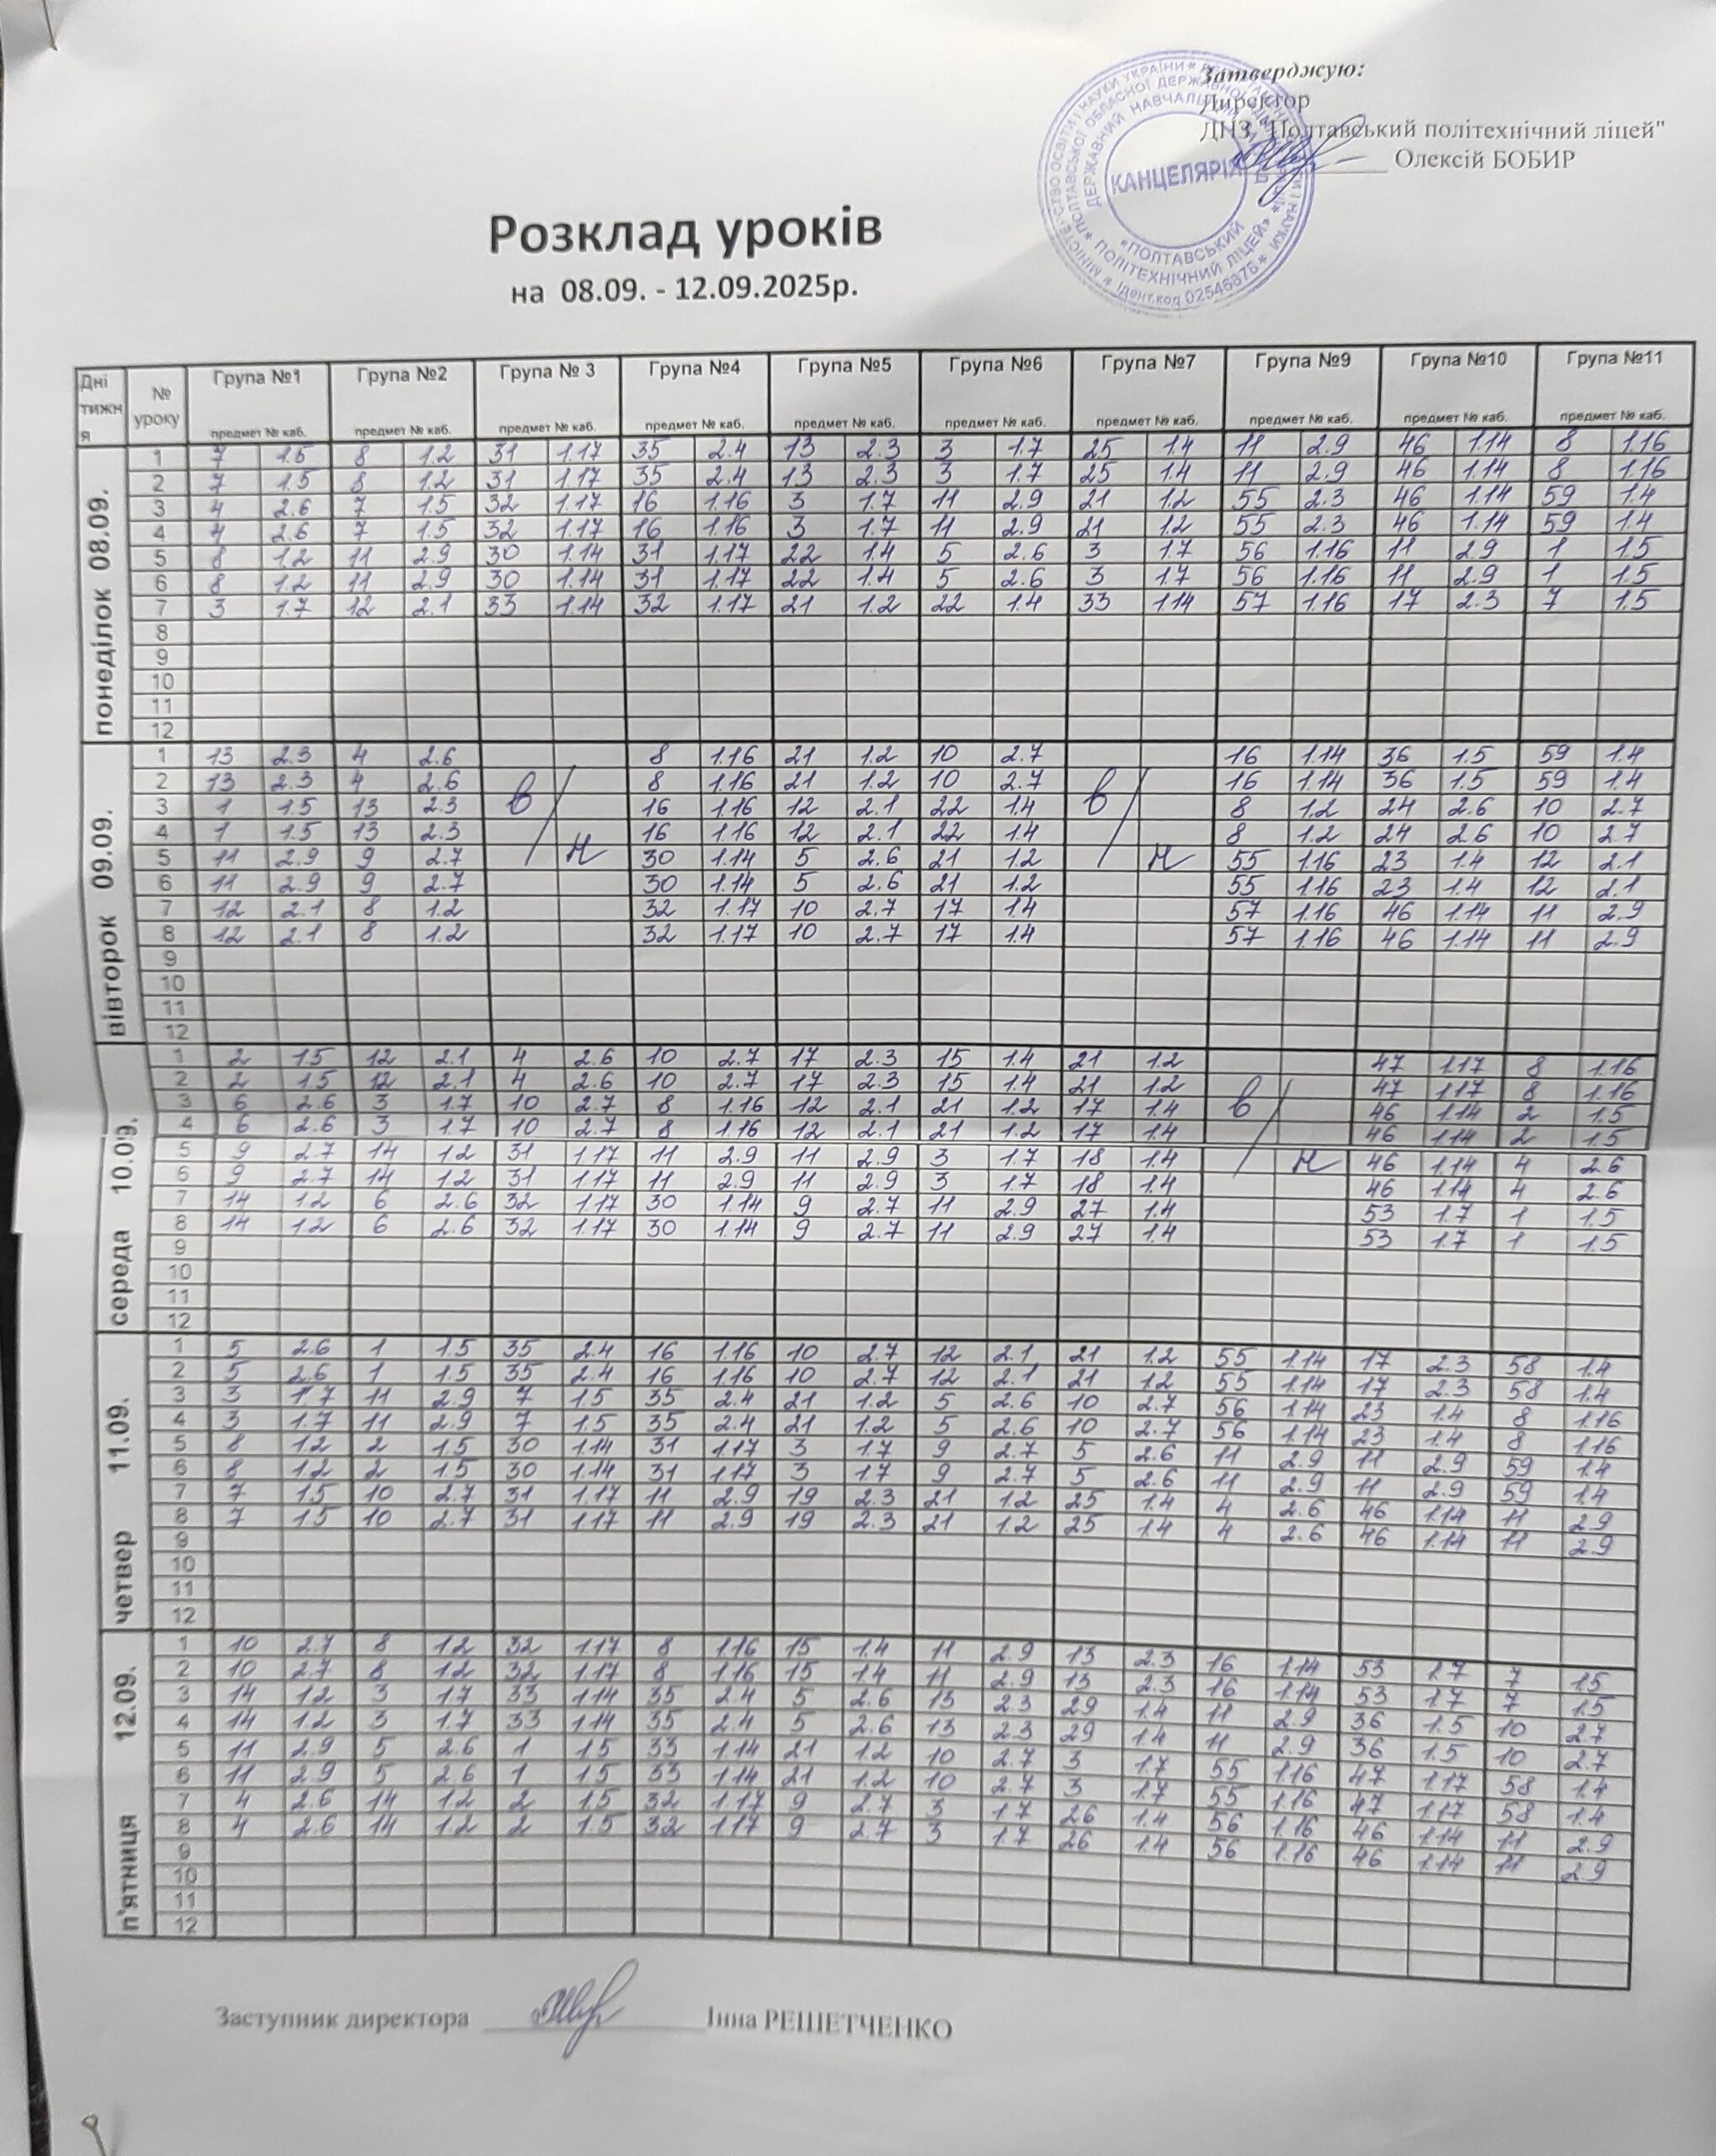 Затверджую:
Директор
ДНЗ "Полтавський політехнічний ліцей"
Олексій БОБИР
КАНЦЕЛЯРІЯ
«ПОЛТАВСЬКИЙ
ПОЛІТЕХНІЧНИЙ ЛІЦЕЙ»
Ідент.код 02546876
Розклад уроків
на 08.09. - 12.09.2025р.
Дні тижня № уроку Група №1 Група №2 Група № 3 Група №4 Група №5 Група №6 Група №7 Група №9 Група №10 Група №11
предмет № каб. предмет № каб. предмет № каб. предмет № каб. предмет № каб. предмет № каб. предмет № каб. предмет № каб. предмет № каб. предмет № каб.
понеділок 08.09.
1 7 1.5 8 1.2 31 1.17 35 2.4 13 2.3 3 1.7 25 1.4 11 2.9 46 1.14 8 1.16
2 7 1.5 8 1.2 31 1.17 35 2.4 13 2.3 3 1.7 25 1.4 11 2.9 46 1.14 8 1.16
3 4 2.6 7 1.5 32 1.17 16 1.16 3 1.7 11 2.9 21 1.2 55 2.3 46 1.14 59 1.4
4 4 2.6 7 1.5 32 1.17 16 1.16 3 1.7 11 2.9 21 1.2 55 2.3 46 1.14 59 1.4
5 8 1.2 11 2.9 30 1.14 31 1.17 22 1.4 5 2.6 3 1.7 56 1.16 11 2.9 1 1.5
6 8 1.2 11 2.9 30 1.14 31 1.17 22 1.4 5 2.6 3 1.7 56 1.16 11 2.9 1 1.5
7 3 1.7 12 2.1 33 1.14 32 1.17 21 1.2 22 1.4 33 1.14 57 1.16 17 2.3 7 1.5
8
9
10
11
12
вівторок 09.09.
1 13 2.3 4 2.6 8 1.16 21 1.2 10 2.7 16 1.14 36 1.5 59 1.4
2 13 2.3 4 2.6 8 1.16 21 1.2 10 2.7 16 1.14 36 1.5 59 1.4
3 1 1.5 13 2.3 в/ 16 1.16 12 2.1 22 1.4 в/ 8 1.2 24 2.6 10 2.7
4 1 1.5 13 2.3 16 1.16 12 2.1 22 1.4 8 1.2 24 2.6 10 2.7
5 11 2.9 9 2.7 н 30 1.14 5 2.6 21 1.2 н 55 1.16 23 1.4 12 2.1
6 11 2.9 9 2.7 30 1.14 5 2.6 21 1.2 55 1.16 23 1.4 12 2.1
7 12 2.1 8 1.2 32 1.17 10 2.7 17 1.4 57 1.16 46 1.14 11 2.9
8 12 2.1 8 1.2 32 1.17 10 2.7 17 1.4 57 1.16 46 1.14 11 2.9
9
10
11
12
середа 10.09.
1 2 1.5 12 2.1 4 2.6 10 2.7 17 2.3 15 1.4 21 1.2 47 1.17 8 1.16
2 2 1.5 12 2.1 4 2.6 10 2.7 17 2.3 15 1.4 21 1.2 47 1.17 8 1.16
3 6 2.6 3 1.7 10 2.7 8 1.16 12 2.1 21 1.2 17 1.4 в/ 46 1.14 2 1.5
4 6 2.6 3 1.7 10 2.7 8 1.16 12 2.1 21 1.2 17 1.4 46 1.14 2 1.5
5 9 2.7 14 1.2 31 1.17 11 2.9 11 2.9 3 1.7 18 1.4 н 46 1.14 4 2.6
6 9 2.7 14 1.2 31 1.17 11 2.9 11 2.9 3 1.7 18 1.4 46 1.14 4 2.6
7 14 1.2 6 2.6 32 1.17 30 1.14 9 2.7 11 2.9 27 1.4 53 1.7 1 1.5
8 14 1.2 6 2.6 32 1.17 30 1.14 9 2.7 11 2.9 27 1.4 53 1.7 1 1.5
9
10
11
12
четвер 11.09.
1 5 2.6 1 1.5 35 2.4 16 1.16 10 2.7 12 2.1 21 1.2 55 1.14 17 2.3 58 1.4
2 5 2.6 1 1.5 35 2.4 16 1.16 10 2.7 12 2.1 21 1.2 55 1.14 17 2.3 58 1.4
3 3 1.7 11 2.9 7 1.5 35 2.4 21 1.2 5 2.6 10 2.7 56 1.14 23 1.4 8 1.16
4 3 1.7 11 2.9 7 1.5 35 2.4 21 1.2 5 2.6 10 2.7 56 1.14 23 1.4 8 1.16
5 8 1.2 2 1.5 30 1.14 31 1.17 3 1.7 9 2.7 5 2.6 11 2.9 11 2.9 59 1.4
6 8 1.2 2 1.5 30 1.14 31 1.17 3 1.7 9 2.7 5 2.6 11 2.9 11 2.9 59 1.4
7 7 1.5 10 2.7 31 1.17 11 2.9 19 2.3 21 1.2 25 1.4 4 2.6 46 1.14 11 2.9
8 7 1.5 10 2.7 31 1.17 11 2.9 19 2.3 21 1.2 25 1.4 4 2.6 46 1.14 11 2.9
9
10
11
12
п'ятниця 12.09.
1 10 2.7 8 1.2 32 1.17 8 1.16 15 1.4 11 2.9 13 2.3 16 1.14 53 1.7 7 1.5
2 10 2.7 8 1.2 32 1.17 8 1.16 15 1.4 11 2.9 13 2.3 16 1.14 53 1.7 7 1.5
3 14 1.2 3 1.7 33 1.14 35 2.4 5 2.6 13 2.3 29 1.4 11 2.9 36 1.5 10 2.7
4 14 1.2 3 1.7 33 1.14 35 2.4 5 2.6 13 2.3 29 1.4 11 2.9 36 1.5 10 2.7
5 11 2.9 5 2.6 1 1.5 33 1.14 21 1.2 10 2.7 3 1.7 55 1.16 47 1.17 58 1.4
6 11 2.9 5 2.6 1 1.5 33 1.14 21 1.2 10 2.7 3 1.7 55 1.16 47 1.17 58 1.4
7 4 2.6 14 1.2 2 1.5 32 1.17 9 2.7 3 1.7 26 1.4 56 1.16 46 1.14 11 2.9
8 4 2.6 14 1.2 2 1.5 32 1.17 9 2.7 3 1.7 26 1.4 56 1.16 46 1.14 11 2.9
9
10
11
12
Заступник директора Інна РЕШЕТЧЕНКО